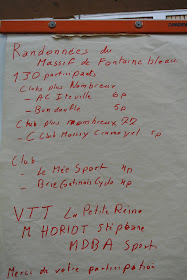 Randonnées du
Massif de Fontainebleau
130 participants
Clubs plus Nombreux
- AC Itteville 6p
- Bondoufle 5p
Club plus nombreux 77
- C Club Moissy Cramayel 5p
Club
- Le Mée Sport 4p
- Brie Gatinais Cyclo 4p
VTT La Petite Reine
M HORIOT Stéphane
MDBA Sport
Merci de votre participation